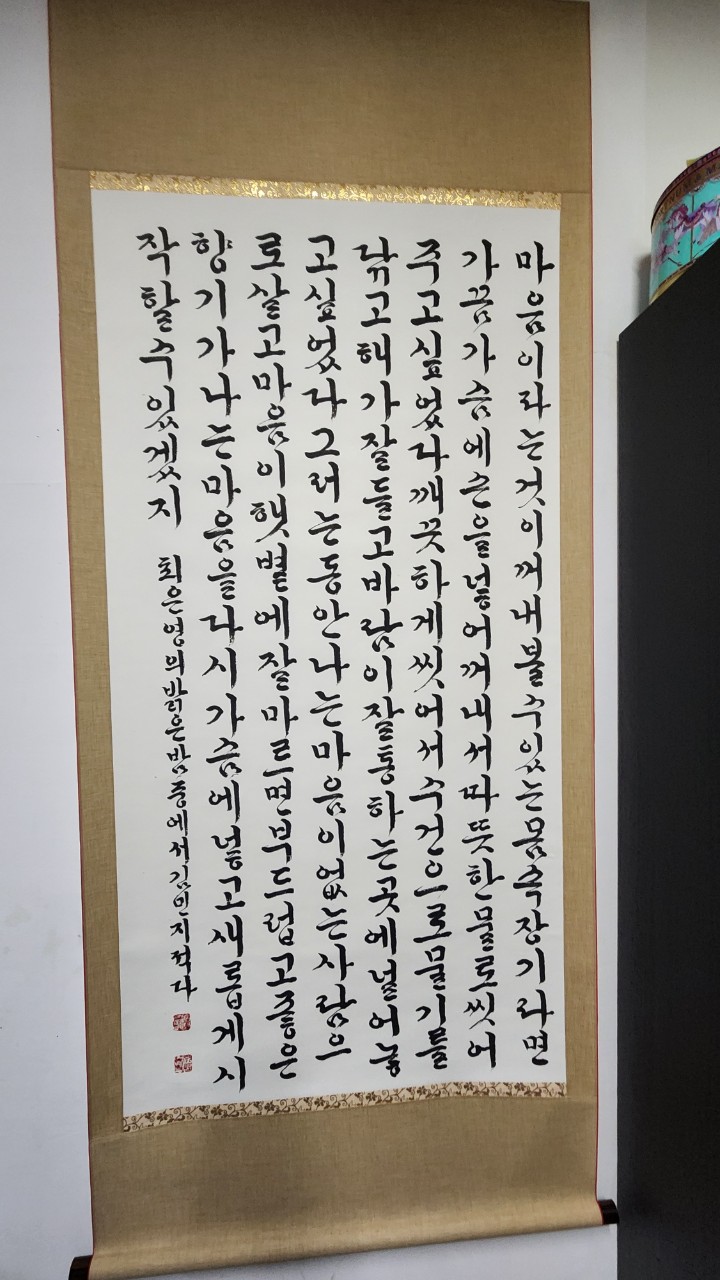 마음이라는것이꺼내볼수있는몸속장기라면
가끔가슴에손을넣어꺼내서따뜻한물로씻어
주고싶었다깨끗하게씻어서수건으로물기를
닦고해가잘들고바람이잘통하는곳에널어놓
고싶었다그러는동안나는마음이없는사람으
로살고마음이햇볕에잘마르면부드럽고좋은
향기가나는마음을다시가슴에넣고새롭게시
작할수있겠지
최은영의밝은밤중에서김민지적다